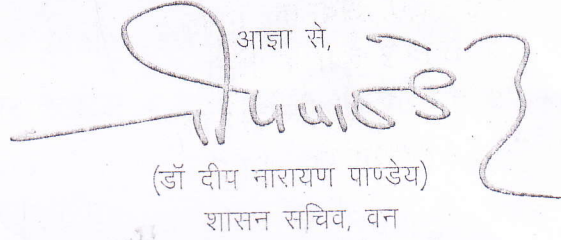 आज्ञा से,
(डॉ दीप नारायण पाण्डेय)
शासन सचिव, वन